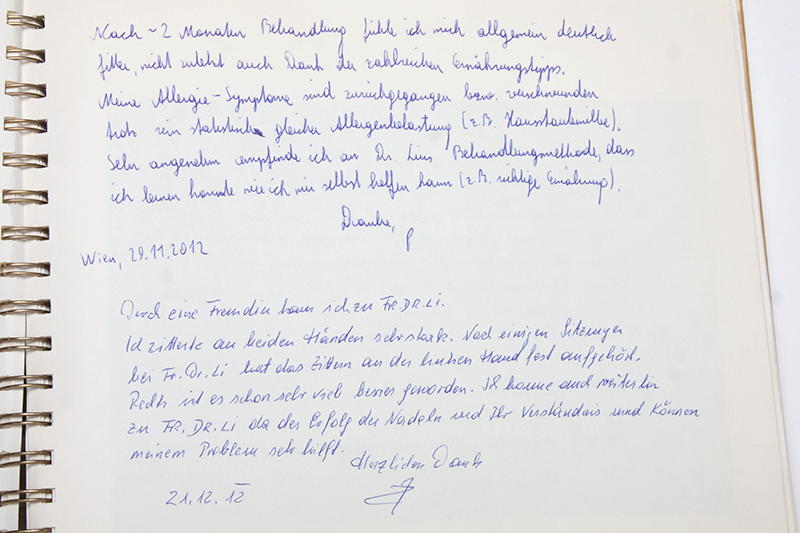 Nach ~2 Monaten Behandlung fühle ich mich allgemein deutlich
fitter, nicht zuletzt auch Dank der zahlreichen Ernährungstipps.
Meine Allergie-Symptome sind zurückgegangen bzw. verschwunden
trotz rein statistisch gleicher Allergenbelastung (z.B. Hausstaubmilbe).
Sehr angenehm empfinde ich an Dr. Lius Behandlungsmethode, dass
ich lernen konnte wie ich mir selbst helfen kann (z.B. richtige Ernährung).
Danke,
Wien, 29.11.2012
Durch eine Freundin kam ich zu Fr. Dr. Li.
Ich zitterte an beiden Händen sehr stark. Nach einigen Sitzungen
bei Fr. Dr. Li hat das Zittern an der linken Hand fast aufgehört.
Rechts ist es schon sehr viel besser geworden. Ich komme auch weiterhin
zu Fr. Dr. Li da der Erfolg der Nadeln und Ihr Verständnis und Können
meinem Problem sehr hilft.
Herzlichen Dank
21.12.12